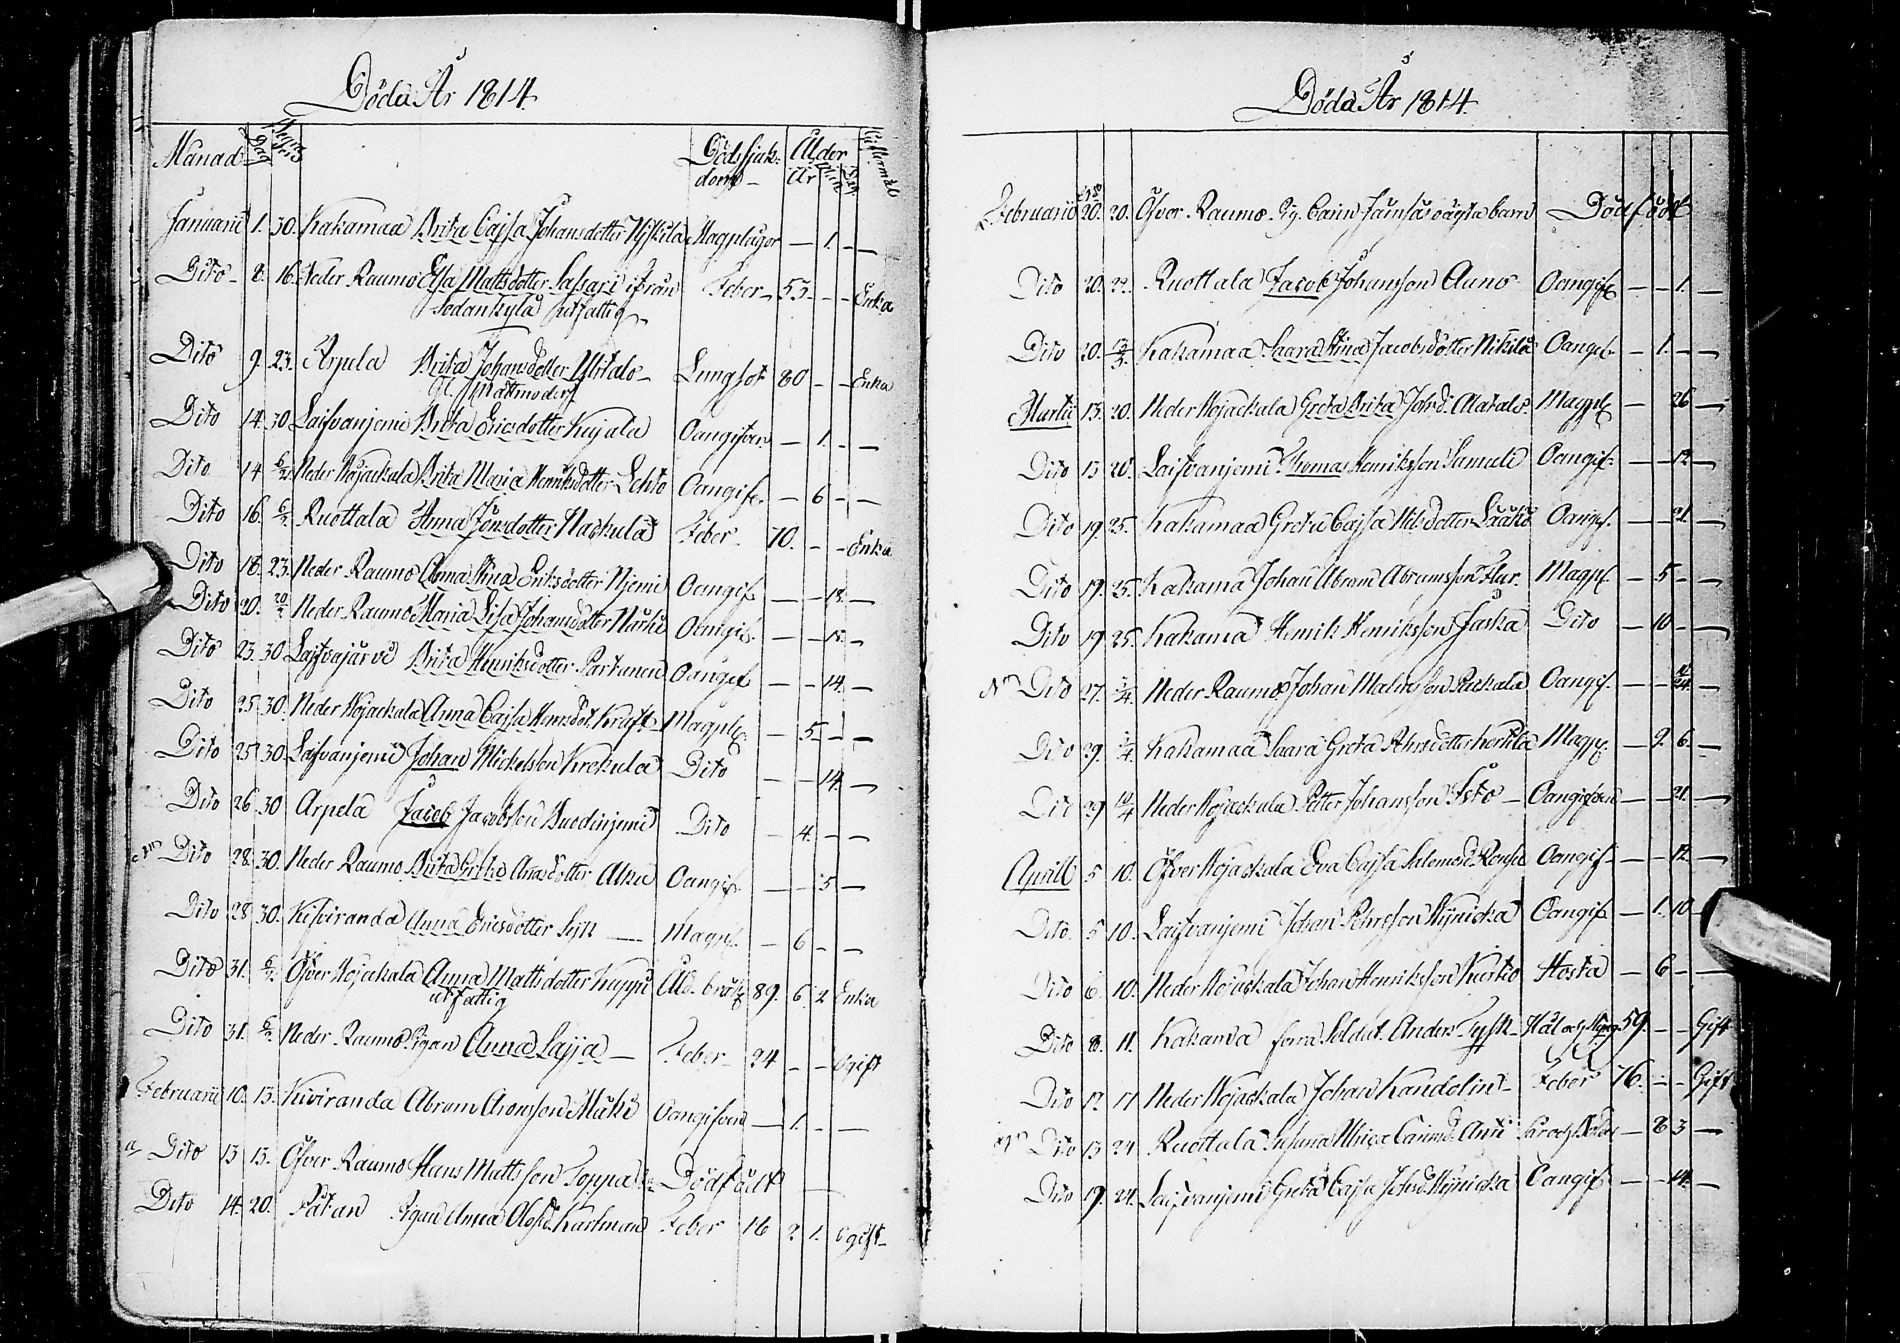 Döda År 1814.
Månad Dag Dödssjuk- Ålder
dom År
Januarii 1. 30. Kakamaa Brita Cajsa Johansdotter Magplågor — 1. — —
Dito 8. 16. Neder Raumo Elsa Mattsdotter Sassari ifrån Feber 53 — — Enka
Sodankylä utfattig
Dito 9. 23. Arpela Brita Johansdotter Lungsot 80 — — Enka
Dito 14. 30 Laifvanjemi Brita Ericsdotter Kujala Oangifven — 1. — —
Dito 14 6/2 Neder Wojackala Brita Maria Henriksdotter Lehto Oangif. — 6 — —
Dito 16. 6/2 Ruottala Anna Jönsdotter Feber 70. — — Enka
Dito 18. 23. Neder Raumo Anna Stina Eriksdotter Njemi Oangif. — — 18. —
Dito 20. 20/2 Neder Raumo Maria Lisa Johansdotter Oangif. — — —
Dito 23. 30 Laifvajärvi Brita Henriksdotter Partanen Oangif. — — 14. —
Dito 25. 30. Neder Wojackala Anna Cajsa Henrsdot. Kruft Magpl. — 5. — —
Dito 25. 30. Laifvanjemi Johan Mickelsson Krekula Dito — — 14. —
Dito 26 30 Arpela Jacob Jacobsson Dito — 4. — —
Dito 28. 30. Neder Raumo Brita Greta Oangif. — — 5 —
Dito 28 30. Kifviranda Anna Ericsdotter — Magpl. — 6 — —
Dito 31. 6/2 Öfver Wojackala Anna Mattsdotter Kuppi 89. 6. 2 Enka
utfattig
Dito 31. 6/2 Neder Raumo Pigan Anna Lajja — Feber 24 — — Ogift
Februarii 10. 13. Kiviranda Abram Aronsson Mäki Oangifven — 1. — —
Dito 13 13. Öfver Raumo Hans Mattsson Toppa Dödfödt —
Dito 14. 20. Påtan Pigan Anna Olofsd. Karlman Feber 16 2. 1. Ogift
Döda År 1814.
Februarii 20. 20. Öfver Raumo Pig. Carin oägta barn Dödfödt
Dito 20. 22. Ruottala Jacob Johansson Auno Oangif. — — 1. —
Dito 20. 13/3 Kakamaa Saara Stina Jacobsdotter Nikula Oangif. — 1. — —
Martii 13. 20. Neder Wojackala Greta Brita Johsd. Alatalo Magpl. — 26 —
Dito 13 20. Laifvanjemi Thomas Henriksson Samuli Oangif. — — 12. —
Dito 19 25. Kakamaa Greta Cajsa Nilsdotter Oangif. — — 21. —
Dito 19. 25. Kakama Johan Abram Abramsson Magpl. — 5 — —
Dito 19 25. Kakama Henrik Henriksson Jaska Dito — 10 — —
Dito 27. 3/4 Neder Raumo Johan Oangif. — — —
Dito 29. 3/4 Kakamaa Saara Greta Magpl. — 2. 6. —
Dito 29 10/4 Neder Wojackala Petter Johansson Isto — Oangifven — — 21. —
Aprill 5 10. Öfver Wojackala Eva Cajsa Salomonsd. Oangif. — — 12. —
Dito 5 10. Laifvanjemi Johan Pehrsson Hynicka Oangif. — 1. 10 —
Dito 6. 10. Neder Wojackala Johan Henriksson Hosta — 6 — —
Dito 8. 11. Kakama förra Soldat. Anders Tysk Håll och Styng 59. — — Gift
Dito 12 17 Neder Wojackala Johan Kandolin Feber 76. — — Gift
Dito 13 24 Ruottala — 8 3 —
Dito 19. 24. Laifvanjemi Greta Cajsa Johsd. Hynicka Oangif. — — 14. —